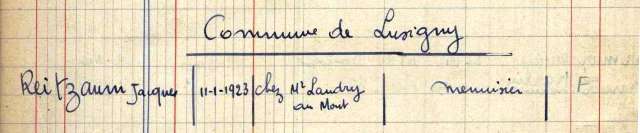 Commune de Lusigny
Reitzaum Jacques 11-1-1923 chez Mr Landry menuisier F
au Mont